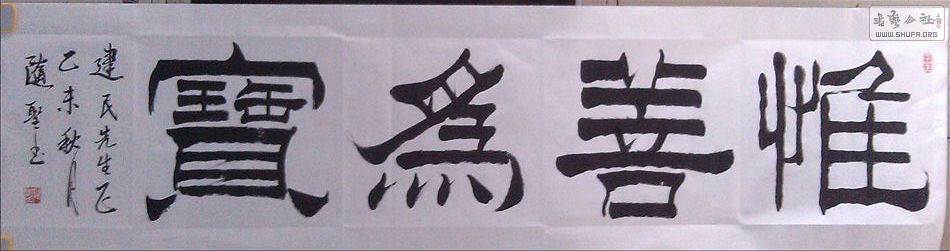 惟善為寶
建民先生正
乙未秋月
隨聖
书艺公社
WWW.SHUFA.ORG